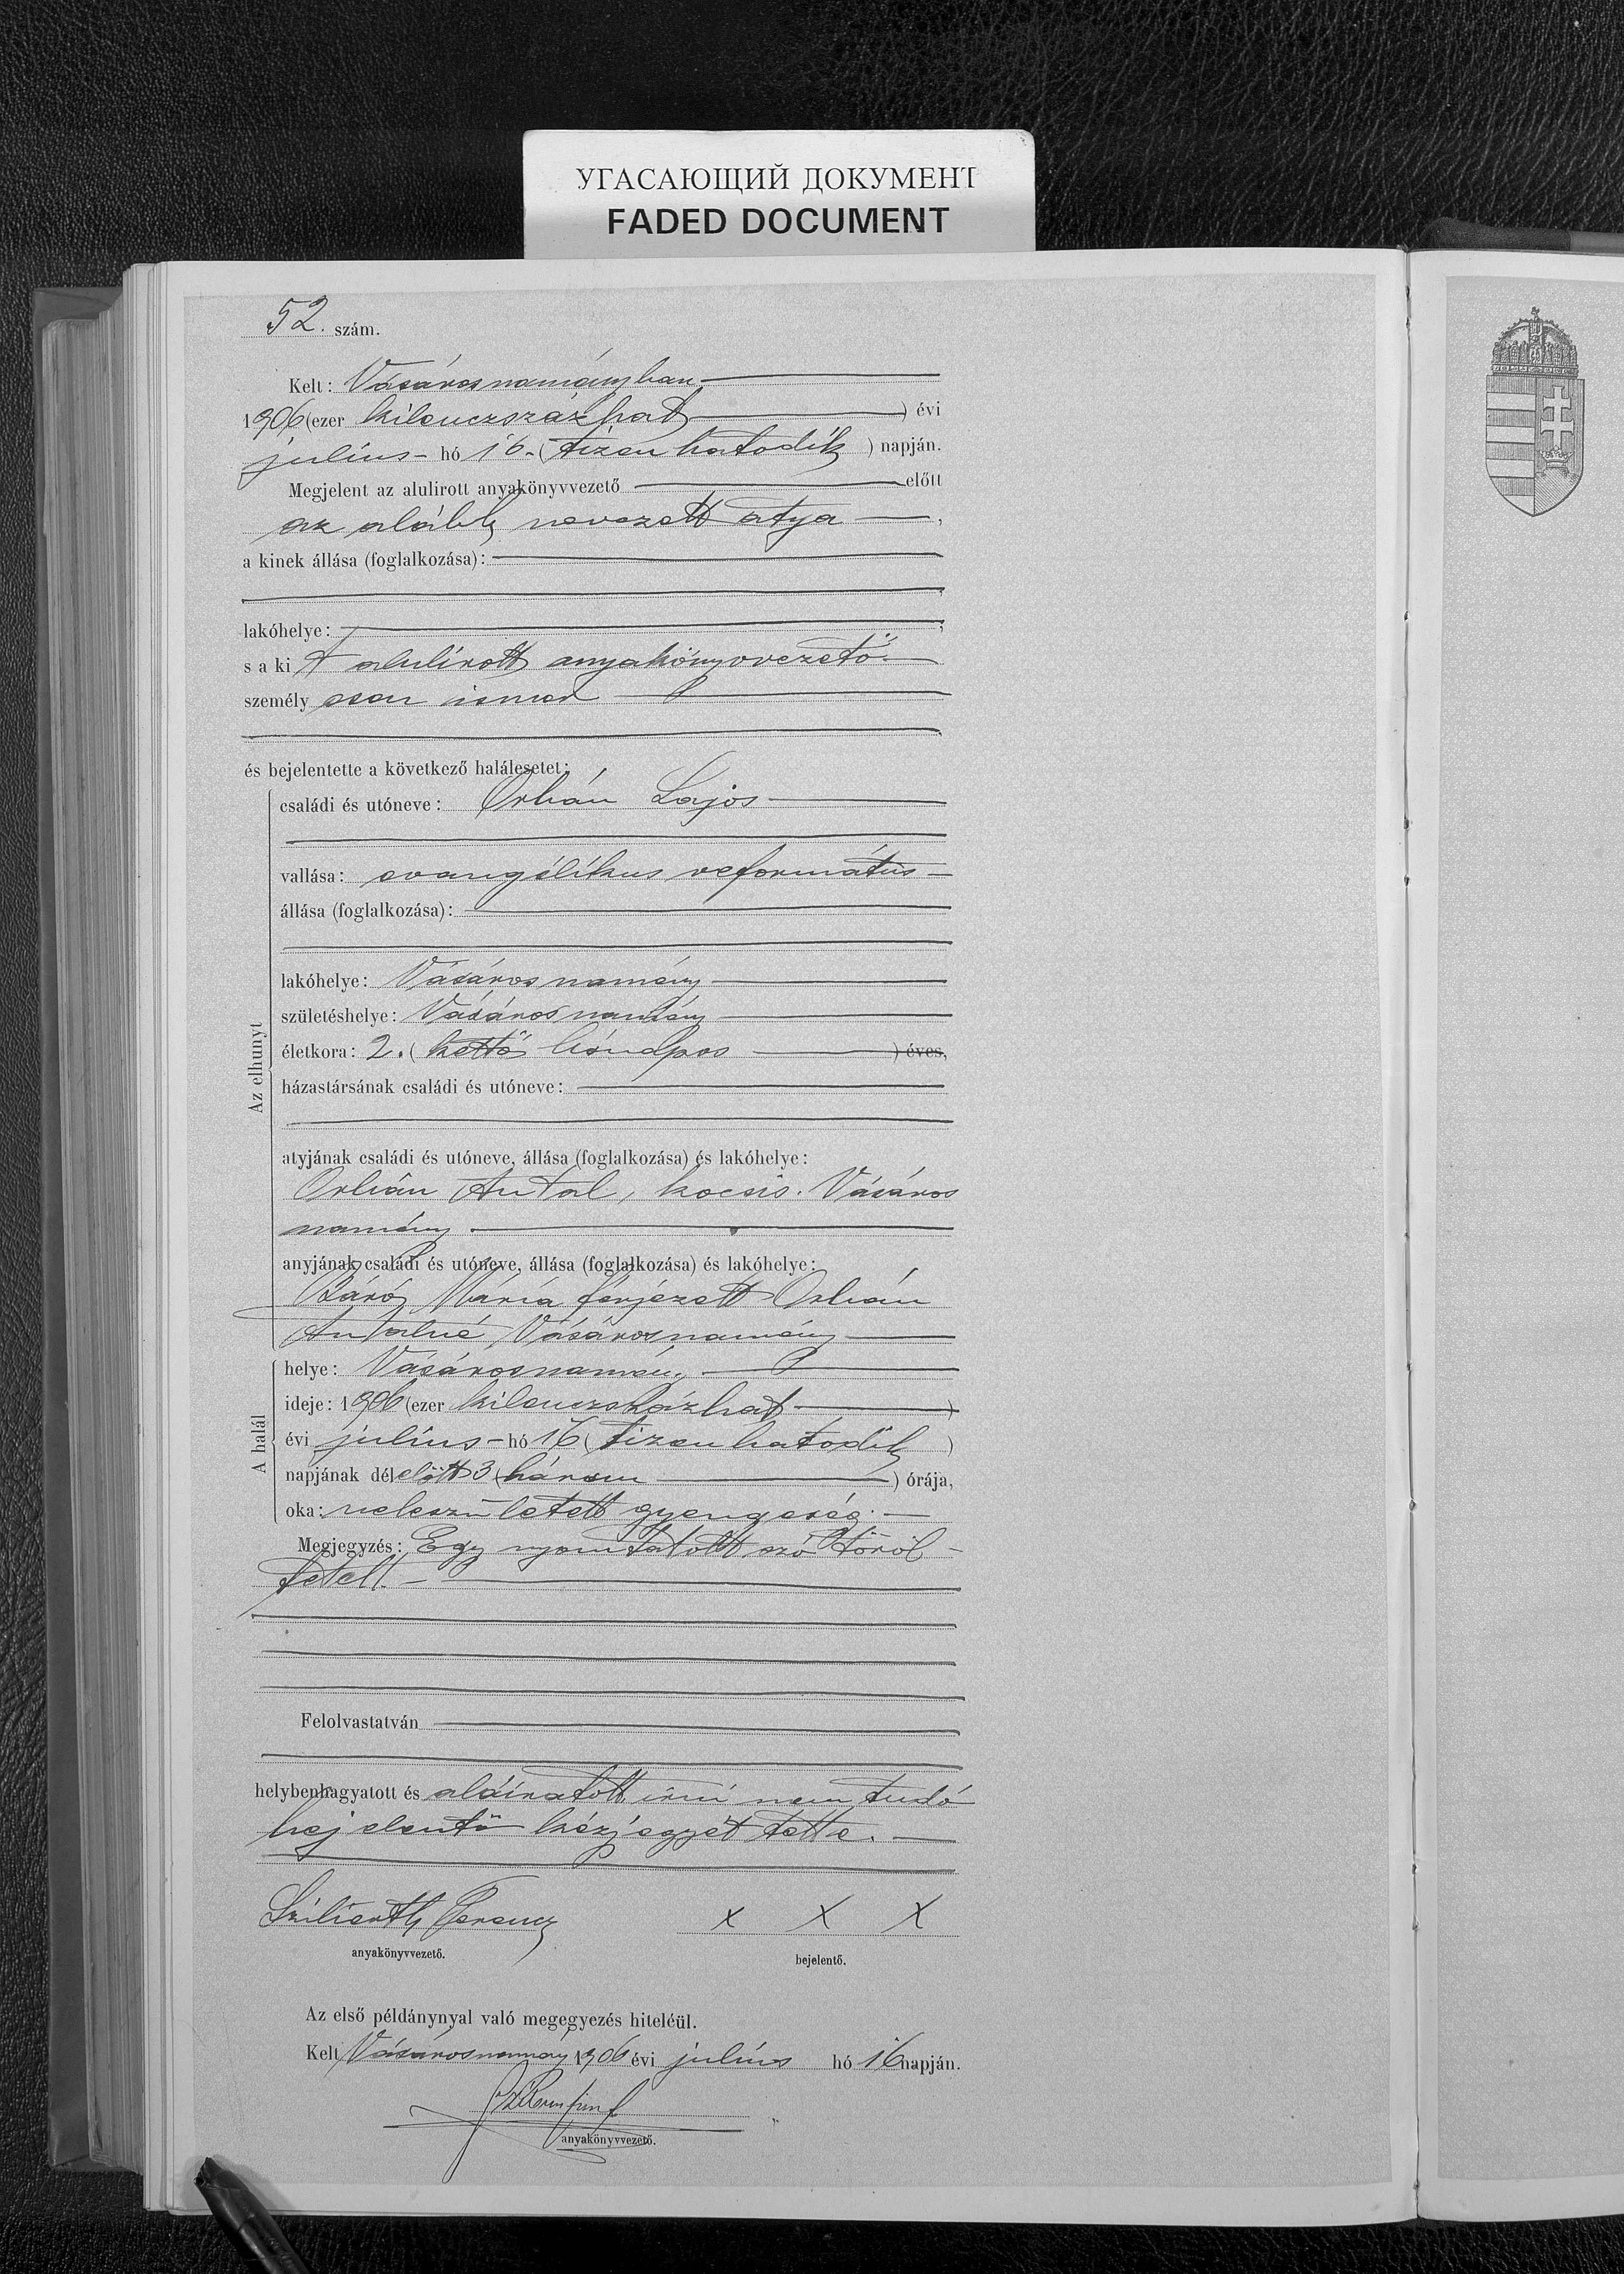 УГАСАЮЩИЙ ДОКУМЕНТ
FADED DOCUMENT
52. szám.
Kelt: Vásárosnaményban
1906 (ezer kilenczszázhat ) évi
július hó 16. (tizenhatodik ) napján.
Megjelent az alulirott anyakönyvvezető előtt
az alább nevezett atya ,
a kinek állása (foglalkozása):
lakóhelye:
s a ki t alulírott anyakönyvvezető
személyesen ismer
és bejelentette a következő halálesetet:
Az elhunyt
családi és utóneve: Orbán Lajos
vallása: evangélikus református
állása (foglalkozása):
lakóhelye: Vásárosnamény
születéshelye: Vásárosnamény
életkora: 2. (kettő hónapos ) éves,
házastársának családi és utóneve:
atyjának családi és utóneve, állása (foglalkozása) és lakóhelye:
Orbán Antal, kocsis. Vásáros
namény
anyjának családi és utóneve, állása (foglalkozása) és lakóhelye:
Mária férjezett Orbán
Antalné, Vásárosnamény
A halál
helye: Vásárosnamény
ideje: 1906 (ezer kilenczszázhat )
évi július hó 16 (tizenhatodik )
napjának délelőtt 3 (három ) órája,
oka: veleszületett gyengeség.
Megjegyzés: Egy nyomtatott szó töröl-
tetett.
Felolvastatván
helybenhagyatott és aláíratott írni nem tudó
bejelentő kézjegyét tette.
Ferencz x x x
anyakönyvvezető. bejelentő.
Az első példánynyal való megegyezés hiteléül.
Kelt Vásárosnamény 1906 évi július hó 16 napján.
anyakönyvvezető.